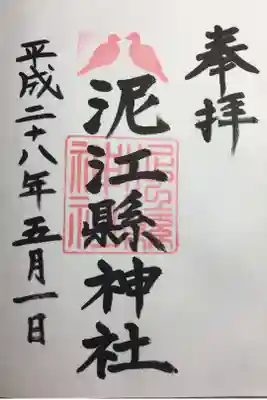 奉拝
泥江縣神社
平成二十八年五月一日